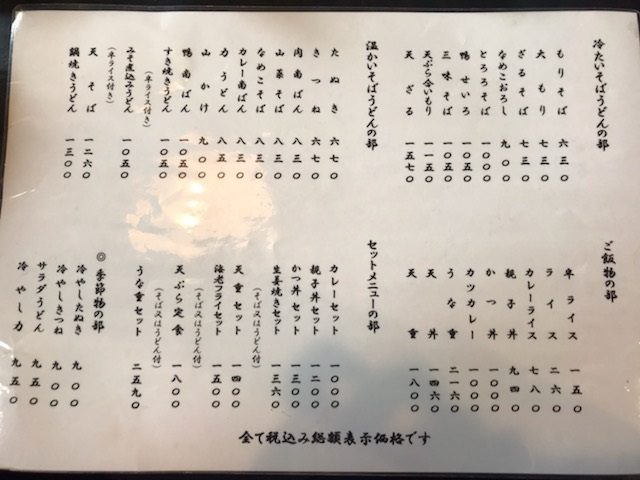 冷たいそばうどんの部
もりそば 六三〇
大もり 七三〇
ざるそば 七三〇
なめこおろし 九〇〇
とろろそば 一〇〇〇
鴨せいろ 一〇五〇
三味そば 一〇五〇
天ぷら合いもり 一一五〇
天ざる 一五七〇
温かいそばうどんの部
たぬき 六七〇
きつね 六七〇
肉南ばん 八三〇
山菜そば 八三〇
なめこそば 八三〇
カレー南ばん 八三〇
力うどん 八五〇
山かけ 九〇〇
鴨南ばん 一〇五〇
すき焼きうどん 一〇五〇
(半ライス付き)
みそ煮込みうどん 一〇五〇
(半ライス付き)
天そば 一二六〇
鍋焼きうどん 一三〇〇
ご飯物の部
半ライス 一五〇
ライス 二六〇
カレーライス 七八〇
親子丼 九四〇
かつ丼 一〇〇〇
カツカレー 一〇〇〇
うな重 二一六〇
天丼 一四六〇
天重 一八〇〇
セットメニューの部
カレーセット 一〇〇〇
親子丼セット 一二〇〇
かつ丼セット 一三〇〇
生姜焼きセット 一三六〇
(そば又はうどん付)
天重セット 一四〇〇
海老フライセット 一五〇〇
(そば又はうどん付)
天ぷら定食 一八〇〇
(そば又はうどん付)
うな重セット 二五九〇
◎季節物の部
冷やしたぬき 九〇〇
冷やしきつね 九〇〇
サラダうどん 九五〇
冷やし力 九五〇
全て税込み総額表示価格です